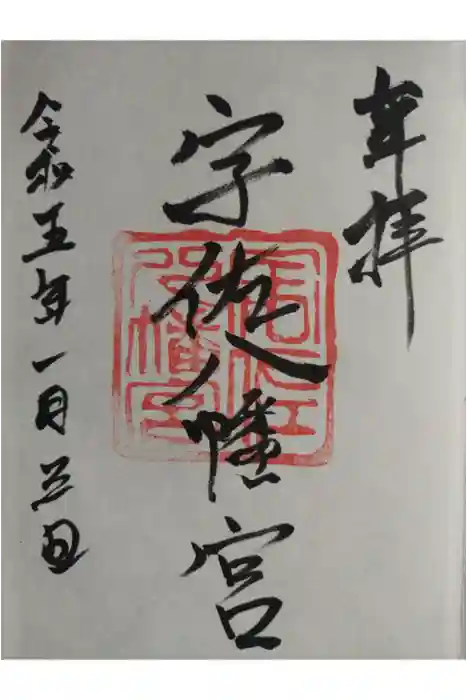 奉拝
宇佐八幡宮
令和五年一月三日